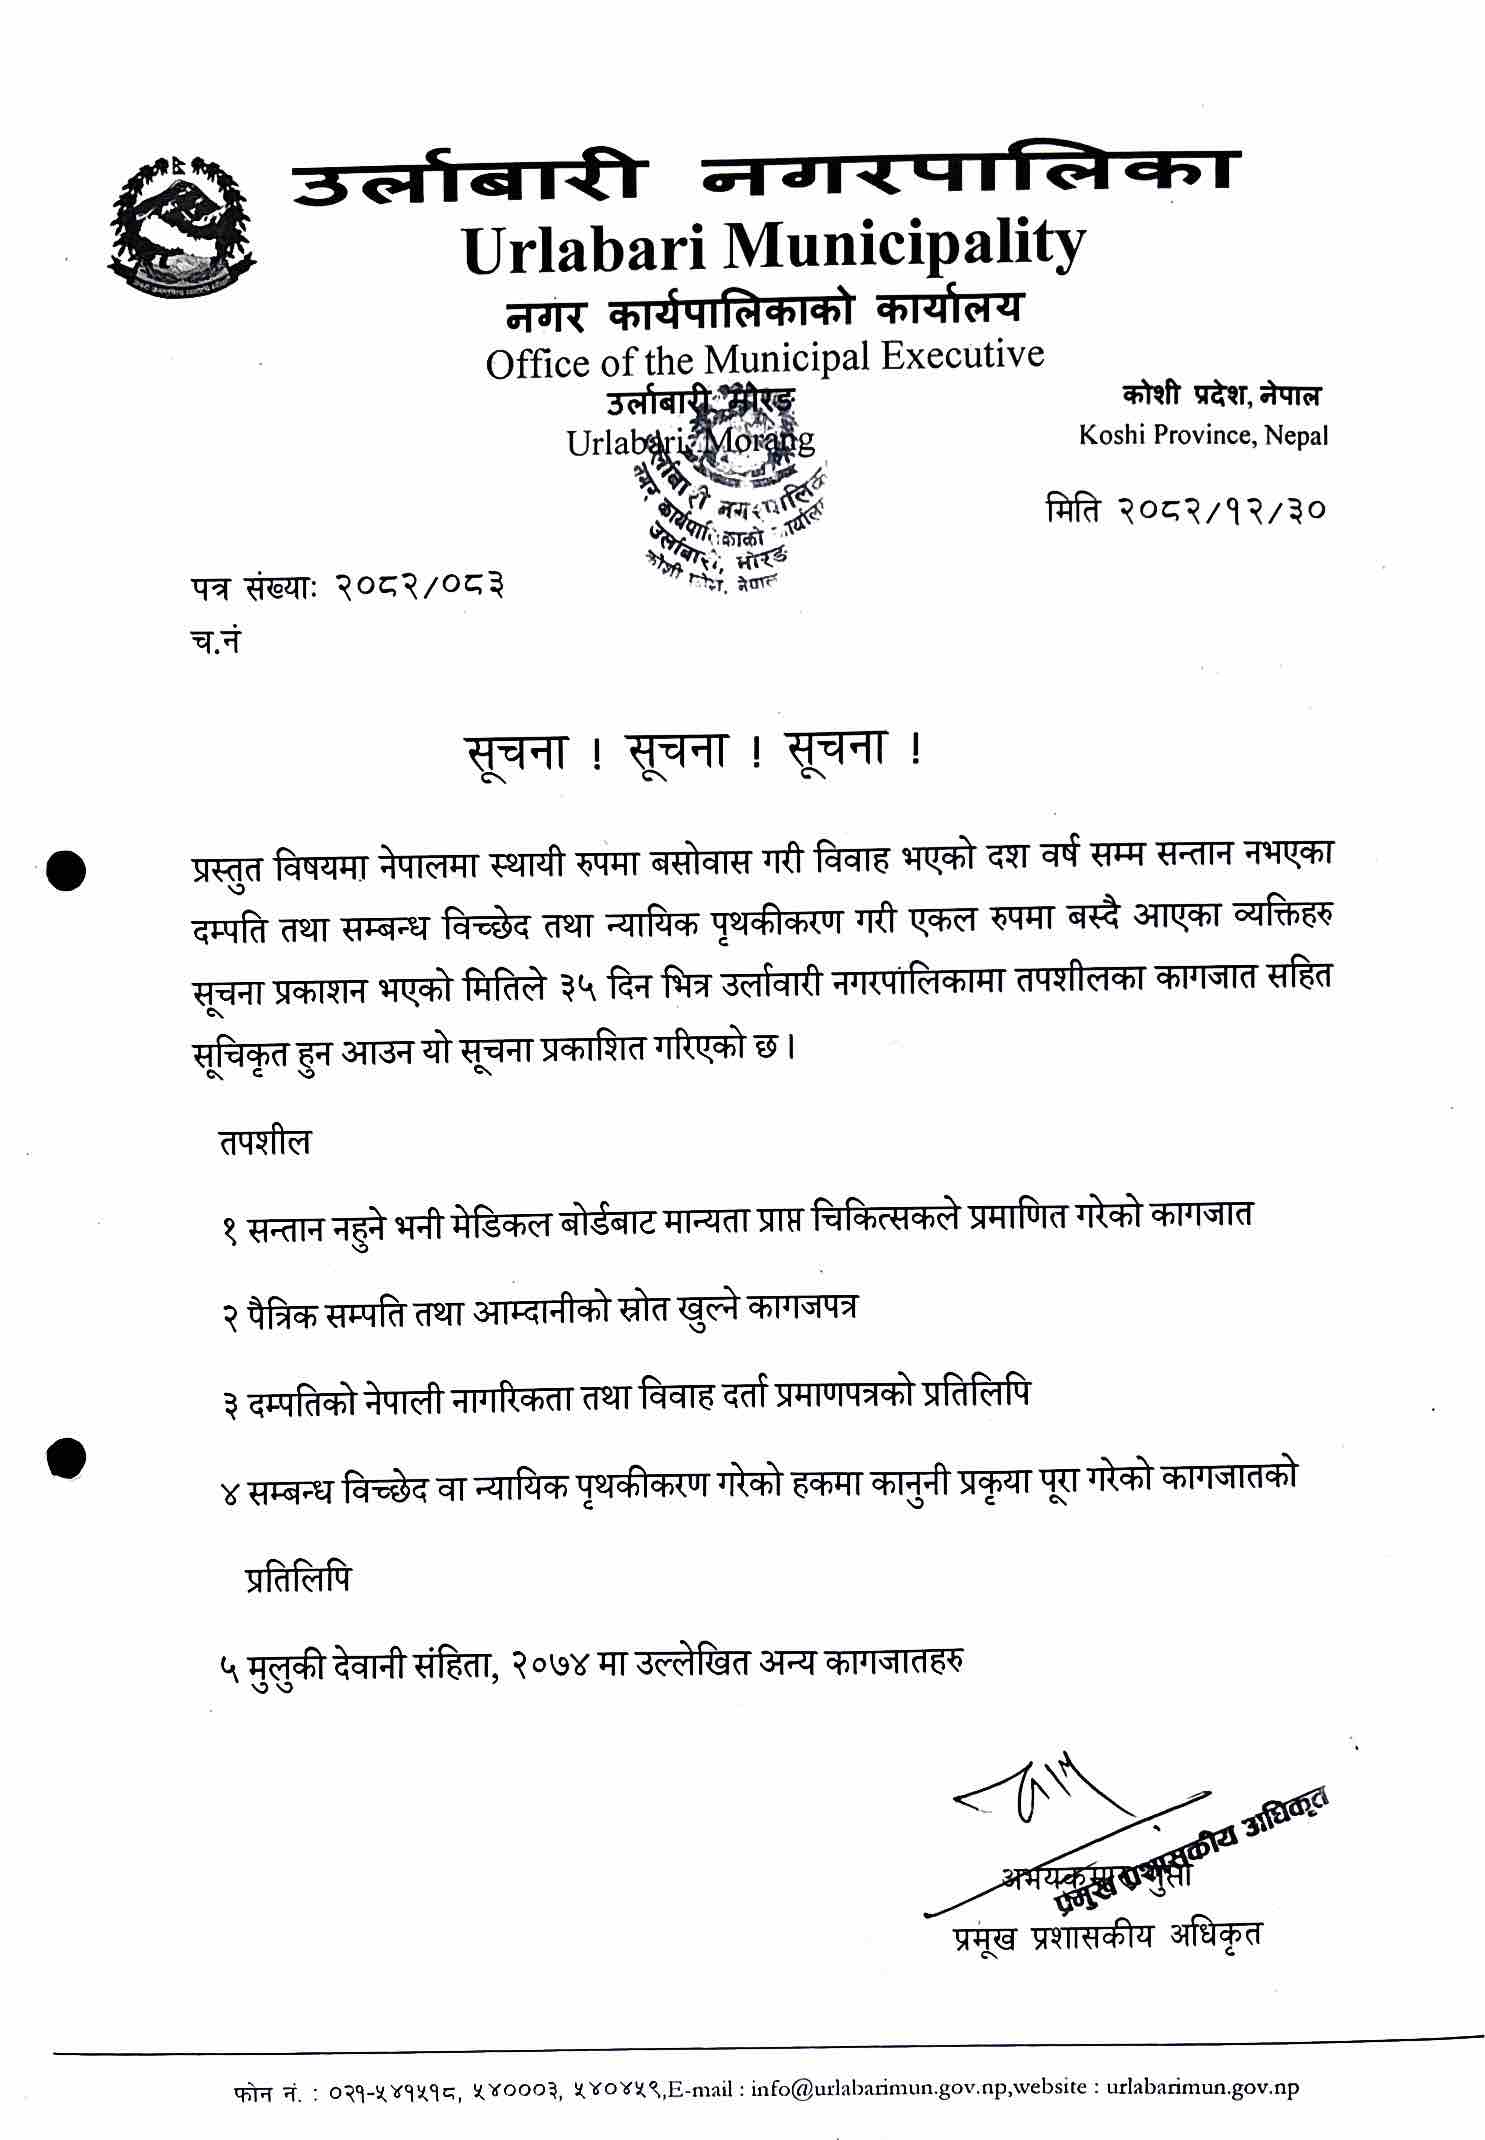 उर्लाबारी नगरपालिका
Urlabari Municipality
नगर कार्यपालिकाको कार्यालय
Office of the Municipal Executive
उर्लाबारी, मोरङ
Urlabari, Morang
कोशी प्रदेश, नेपाल
Koshi Province, Nepal
उर्लाबारी नगरपालिका
नगर कार्यपालिकाको कार्यालय
उर्लाबारी, मोरङ
कोशी प्रदेश, नेपाल
मिति २०८२/१२/३०
पत्र संख्याः २०८२/०८३
च.नं
सूचना ! सूचना ! सूचना !
प्रस्तुत विषयमा नेपालमा स्थायी रुपमा बसोवास गरी विवाह भएको दश वर्ष सम्म सन्तान नभएका
दम्पति तथा सम्बन्ध विच्छेद तथा न्यायिक पृथकीकरण गरी एकल रुपमा बस्दै आएका व्यक्तिहरु
सूचना प्रकाशन भएको मितिले ३५ दिन भित्र उर्लावारी नगरपालिकामा तपशीलका कागजात सहित
सूचिकृत हुन आउन यो सूचना प्रकाशित गरिएको छ ।
तपशील
१ सन्तान नहुने भनी मेडिकल बोर्डबाट मान्यता प्राप्त चिकित्सकले प्रमाणित गरेको कागजात
२ पैत्रिक सम्पति तथा आम्दानीको स्रोत खुल्ने कागजपत्र
३ दम्पतिको नेपाली नागरिकता तथा विवाह दर्ता प्रमाणपत्रको प्रतिलिपि
४ सम्बन्ध विच्छेद वा न्यायिक पृथकीकरण गरेको हकमा कानुनी प्रकृया पूरा गरेको कागजातको
प्रतिलिपि
५ मुलुकी देवानी संहिता, २०७४ मा उल्लेखित अन्य कागजातहरु
अभयकुमार गुप्ता
प्रमुख प्रशासकीय अधिकृत
प्रमूख प्रशासकीय अधिकृत
फोन नं. : ०२१-५४१५१८, ५४०००३, ५४०४५९,E-mail : info@urlabarimun.gov.np,website : urlabarimun.gov.np